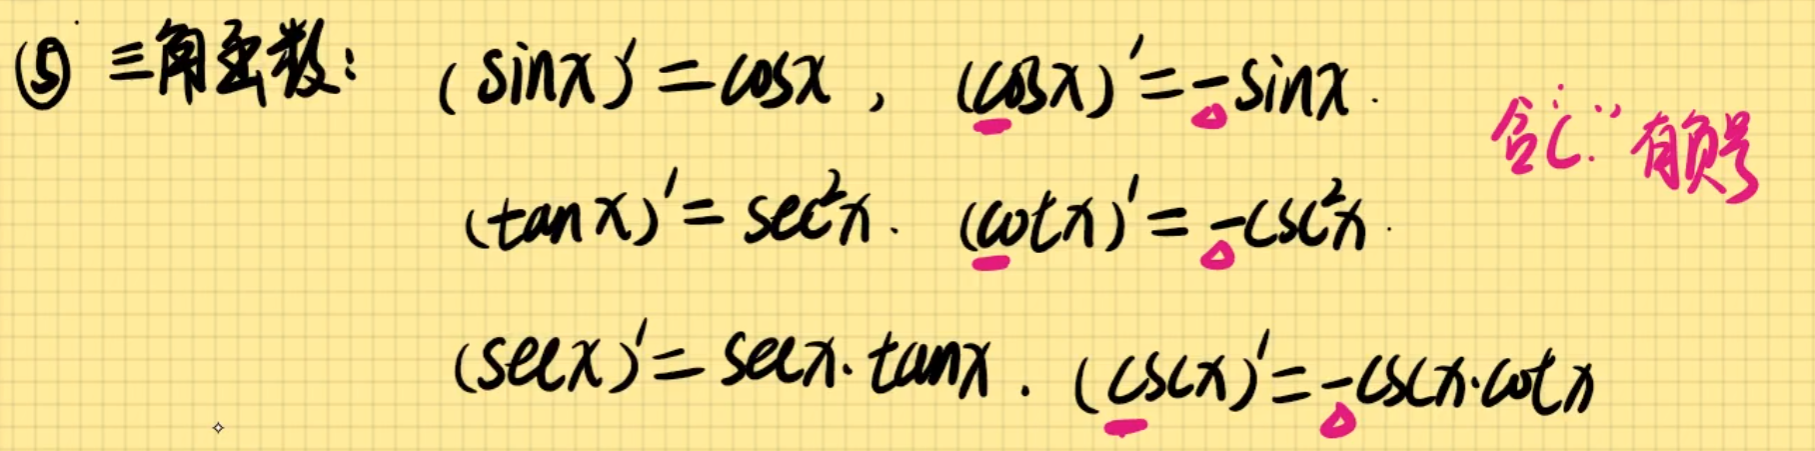 ⑤ 三角函数: (sinx)′=cosx, (cosx)′=-sinx.
含“C”有负号
(tanx)′=sec²x. (cotx)′=-csc²x.
(secx)′=secx·tanx. (cscx)′=-cscx·cotx